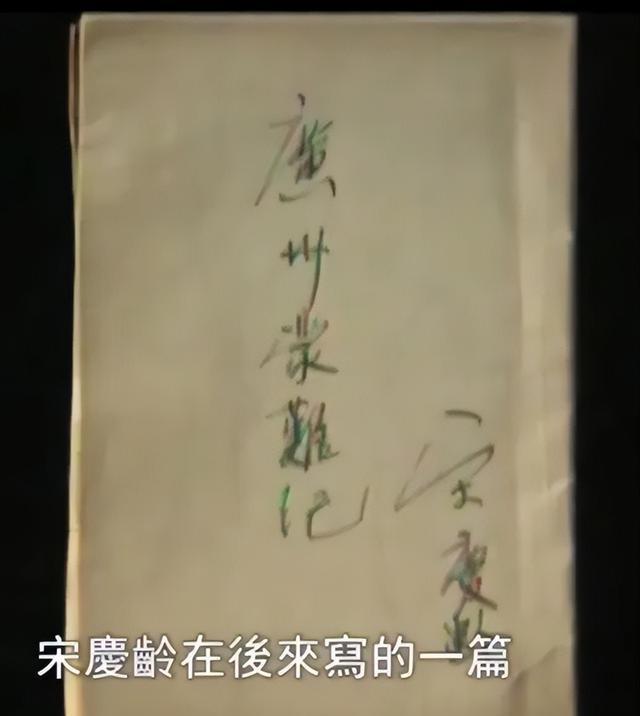 廣州蒙難記
宋慶齡
宋慶齡在後來寫的一篇